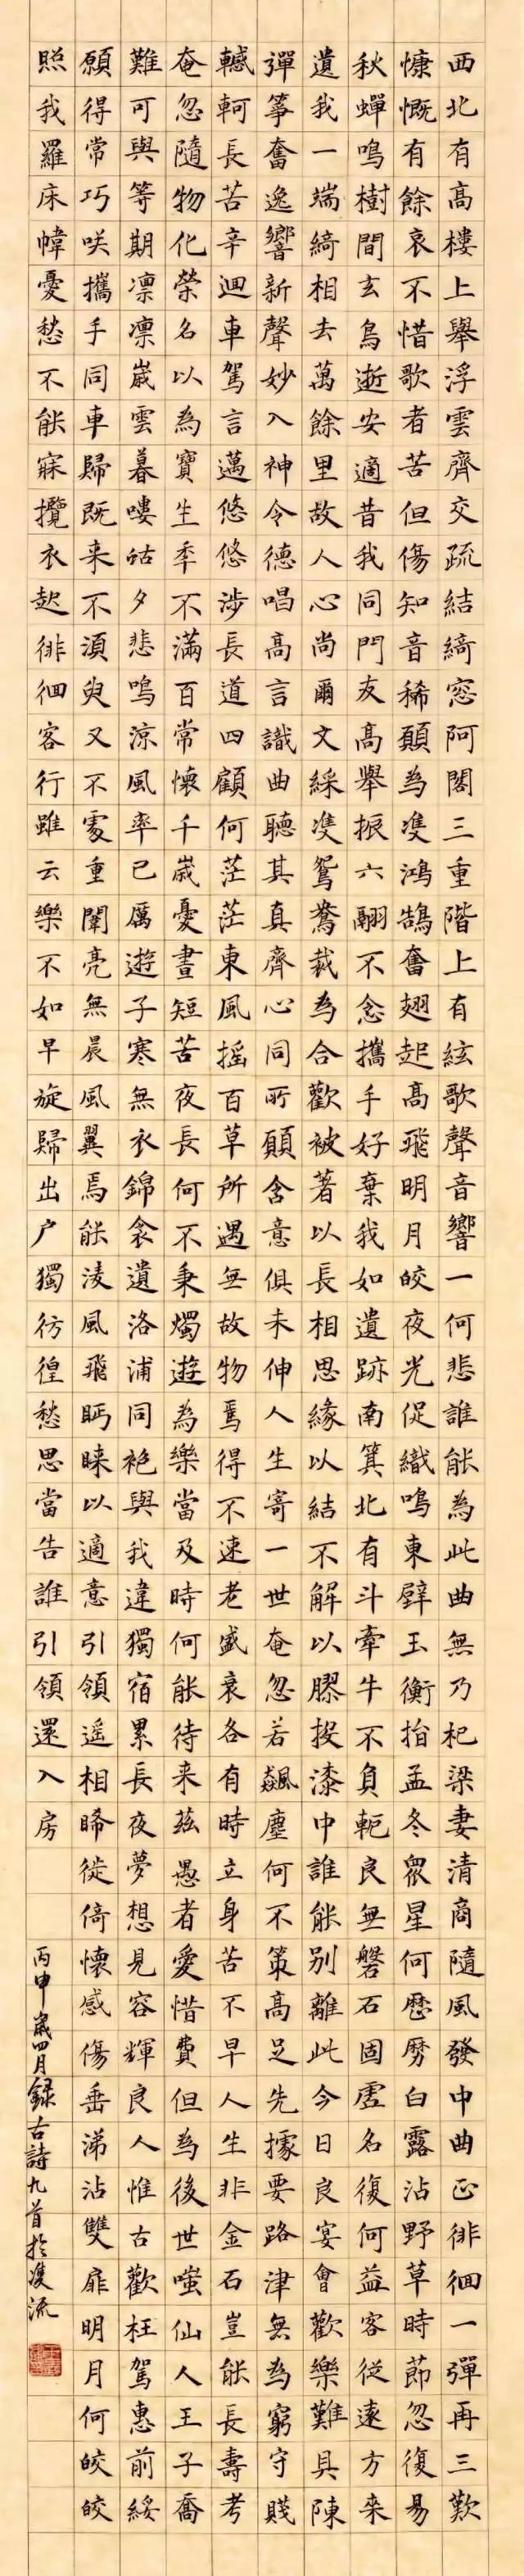 西北有高樓上舉浮雲齊交疏結綺窓阿閣三重階上有絃歌聲音響一何悲誰能為此曲無乃杞梁妻清商隨風發中曲正徘徊一彈再三歎
慷慨有餘哀不惜歌者苦但傷知音稀願為雙鴻鵠奮翅起高飛明月皎夜光促織鳴東壁玉衡指孟冬眾星何歷歷白露沾野草時節忽復易
秋蟬鳴樹間玄鳥逝安適昔我同門友高舉振六翮不念攜手好棄我如遺跡南箕北有斗牽牛不負軛良無磐石固虛名復何益客從遠方來
遺我一端綺相去萬餘里故人心尚爾文綵雙鴛鴦裁為合歡被著以長相思緣以結不解以膠投漆中誰能別離此今日良宴會歡樂難具陳
彈箏奮逸響新聲妙入神令德唱高言識曲聽其真齊心同所願含意俱未伸人生寄一世奄忽若飆塵何不策高足先據要路津無為窮守賤
轗軻長苦辛迴車駕言邁悠悠涉長道四顧何茫茫東風搖百草所遇無故物焉得不速老盛衰各有時立身苦不早人生非金石豈能長壽考
奄忽隨物化榮名以為寶生年不滿百常懷千歲憂晝短苦夜長何不秉燭遊為樂當及時何能待来茲愚者愛惜費但為後世嗤仙人王子喬
難可與等期凛凛歲雲暮螻蛄夕悲鳴涼風率已厲遊子寒無衣錦衾遺洛浦同袍與我違獨宿累長夜夢想見容輝良人惟古歡枉駕惠前綏
願得常巧咲攜手同車歸既来不須臾又不處重闈亮無晨風翼焉能凌風飛眄睞以適意引領遥相睎徙倚懷感傷垂涕沾雙扉明月何皎皎
照我羅床幃憂愁不能寐攬衣起徘徊客行雖云樂不如早旋歸出户獨彷徨愁思當告誰引領還入房
丙申歲四月録古詩九首於雙流